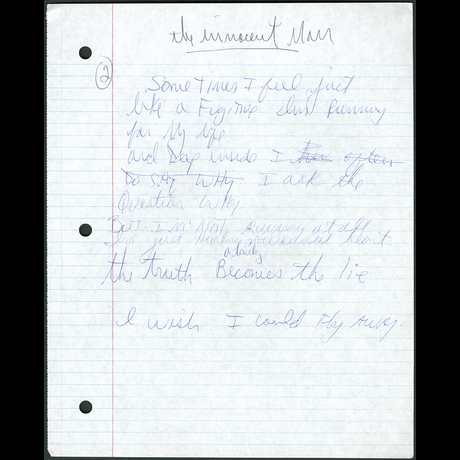 the innocent Man
2
Sometimes I feel just
like a Fugitive Im Running
for My life
and Deep inside I
Do say Why I ask the
Question Why
But I'm Not Running at all
Im just heart
the truth Becomes the lie
I wish I could Fly Away.